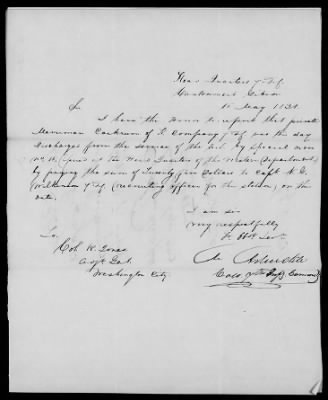 Head Quarters 7 Inf
Cantonment Gibson
1st May 1831
Sir
I have the honor to report that private
Merriman of I Company 7 Inf was this day
discharged from the service of the U.S. by special order
No 11, issued at the Head Quarters of the Western Department
by paying the sum of Twenty five Dollars to Capt N. G.
Wilkinson 7 Inf (recruiting officer for the station) on this
date.
I am sir
very respectfully
Yr Obt Servt
To
Col R. Jones
Adjt Genl
Washington City
M Arbuckle
Colo 7th Infy Comdg